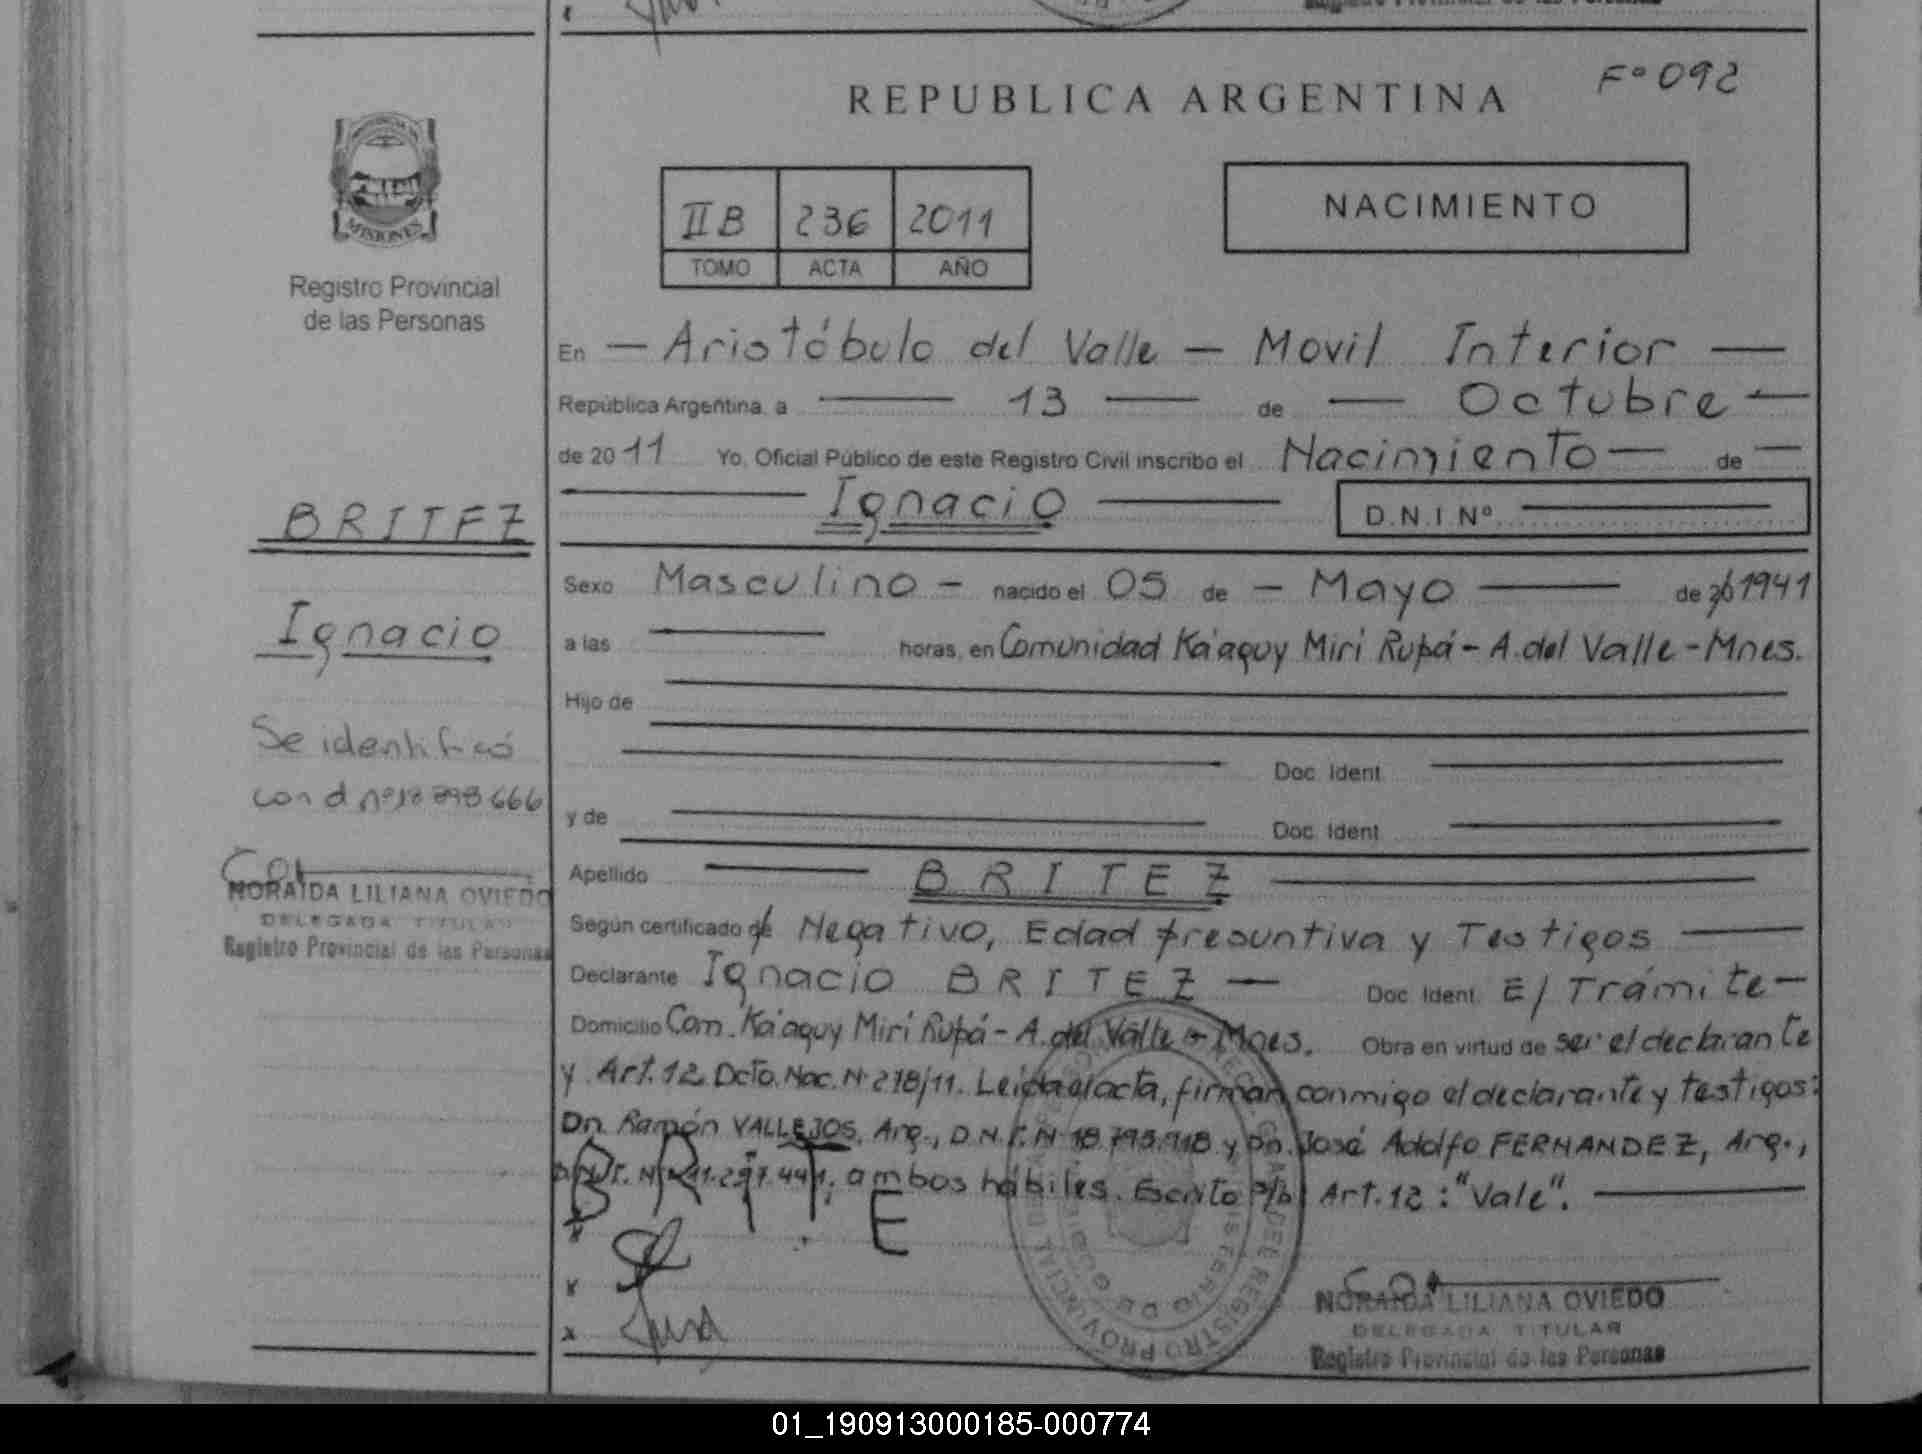 Fº 092
REPUBLICA ARGENTINA
MISIONES
Registro Provincial
de las Personas
II B 236 2011
TOMO ACTA AÑO
NACIMIENTO
En — Aristóbulo del Valle — Movil Interior —
República Argentina, a — 13 — de — Octubre —
de 2011 Yo, Oficial Público de este Registro Civil inscribo el Nacimiento — de —
— Ignacio — D.N.I Nº —
BRITEZ
Ignacio
Se identificó
con d nº
NORAIDA LILIANA OVIEDO
DELEGADA TITULAR
Registro Provincial de las Personas
Sexo Masculino — nacido el 05 de — Mayo — de 1941
a las — horas, en Comunidad Ka'aguy Mirí Rupá - A. del Valle - Mnes.
Hijo de —
— Doc. Ident. —
y de — Doc. Ident. —
Apellido — BRITEZ —
Según certificado de Negativo, Edad presuntiva y Testigos —
Declarante Ignacio BRITEZ — Doc. Ident. E/ Trámite —
Domicilio Com. Ka'aguy Mirí Rupá - A. del Valle - Mnes. Obra en virtud de ser el declarante
y Art. 12 Dcto. Nac. Nº 278/11. Leida el acta, firman conmigo el declarante y testigos:
Dn. Ramón VALLEJOS, Arg., D.N.I. Nº y Dn. José Adolfo FERNANDEZ, Arg.,
D.N.I. Nº ambos hábiles. Escrito s/b Art. 12: "Vale". —
BRITE
x
x
x
NORAIDA LILIANA OVIEDO
DELEGADA TITULAR
Registro Provincial de las Personas
01_190913000185-000774